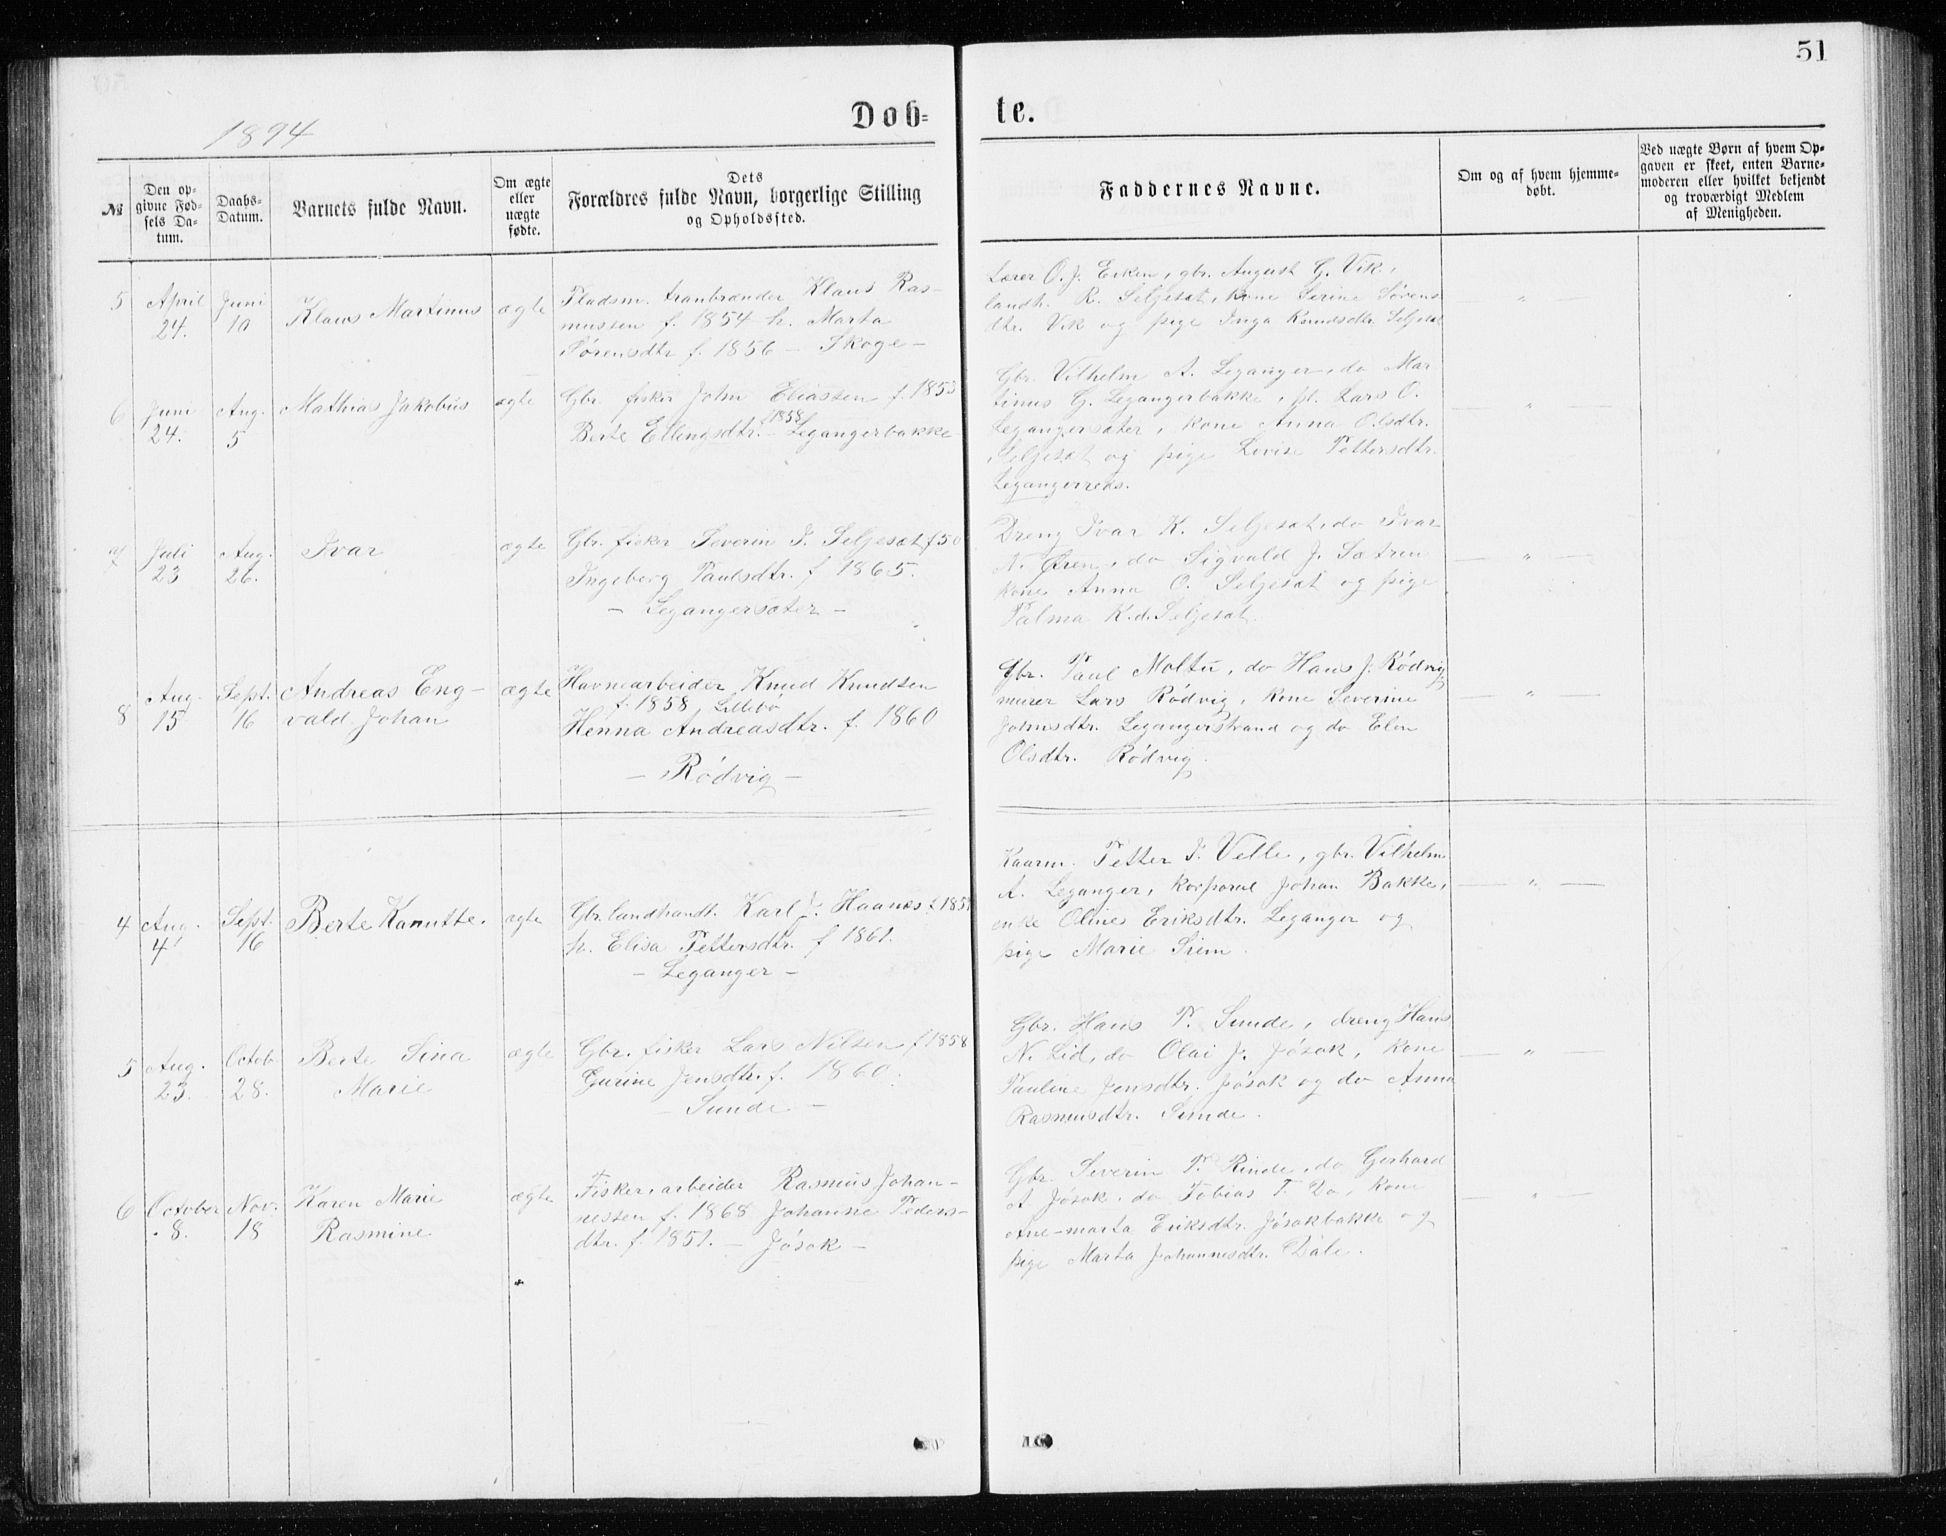 51
Dob= te.
1894
№
Den op=
givne Fød=
sels Da=
tum.
Daabs=
Datum.
Barnets fulde Navn.
Om ægte
eller
uægte
fødte.
Dets
Forældres fulde Navn, borgerlige Stilling
og Opholdssted.
Faddernes Navne.
Om og af hvem hjemme=
døbt.
Ved uægte Børn af hvem Op=
gaven er skeet, enten Barne=
moderen eller hvilket bekjendt
og troværdigt Medlem
af Menigheden.
5
April
24.
Juni
10
Klaus Martinus
ægte
Pladsm. tranbrænder Klaus Ras-
mussen f. 1854 h. Marta
Sørensdtr f. 1856 - Skoge -
Lærer O. J. Eiken, gbr. August G. Vik,
landh. R. Seljesæt, kone Serine Sørens
dtr. Vik og pige Inga Knudsdtr. Seljesæt
— " —
6
Juni
24.
Aug.
5
Mathias Jakobus
ægte
Gbr. fisker John Eliassen f. 1853
Berte Ellingsdtr. f 1858 - Legangerbakke
Gbr. Vilhelm A. Leganger, do Mar
tinus G. Legangerbakke, pl. Lars O.
Legangersæter, kone Anna Olsdtr.
Seljesæt og pige Lovise Pettersdtr.
Legangerneds.
— " —
7
Juli
23
Aug.
26.
Ivar
ægte
Gbr. fisker Severin I. Seljesæt f 50
Ingeborg Paulsdtr. f 1865.
- Legangersæter -
Dreng Ivar K. Seljesæt, do Ivar
N. Øren, do Sigvald J. Sætren
kone Anna O. Seljesæt og pige
Palma K.d. Seljesæt.
— " —
8
Aug.
15
Sept.
16
Andreas Eng-
vald Johan
ægte
Havnearbeider Knud Knudsen
f. 1858, Lillebø
Henna Andreasdtr. f. 1860
- Rødvig -
Gbr. Paul Moltu, do Hans J. Rødvig,
murer Lars Rødvig, kone Severine
Johnsdtr. Legangerstrand og do Elen
Olsdtr. Rødvig.
— " —
4
Aug.
4
Sept.
16
Berte Kanutte.
ægte
Gbr. landhandl. Karl J. Haanes f 185
h. Elisa Pettersdtr. f 1861.
- Leganger -
Kaarm. Petter I. Velle, gbr. Vilhelm
A. Leganger, korporal Johan Bakke,
enke Oline Eriksdtr. Leganger og
pige Marie Siem.
— " —
5
Aug.
23.
Octob.
28.
Berte Sina
Marie
ægte
Gbr. fisker Lars Nilsen f 1858
Gurine Jensdtr. f. 1860.
- Sunde -
Gbr. Hans P. Sunde, dreng Hans
N. Lid, do Olai J. Jøsok, kone
Pauline Jensdtr. Jøsok og do Anna
Rasmusdtr. Sunde.
— " —
6
October
8.
Nov.
18
Karen Marie
Rasmine
ægte
Fisker, arbeider Rasmus Johan-
nessen f. 1868 Johanne Peders-
dtr. f. 1851. - Jøsok -
Gbr. Severin P. Rinde, do Gerhard
A Jøsok, do Tobias T. Do, kone
Ane-marta Eriksdtr. Jøsokbakke og
pige Marta Johannesdtr. Dale.
— " —